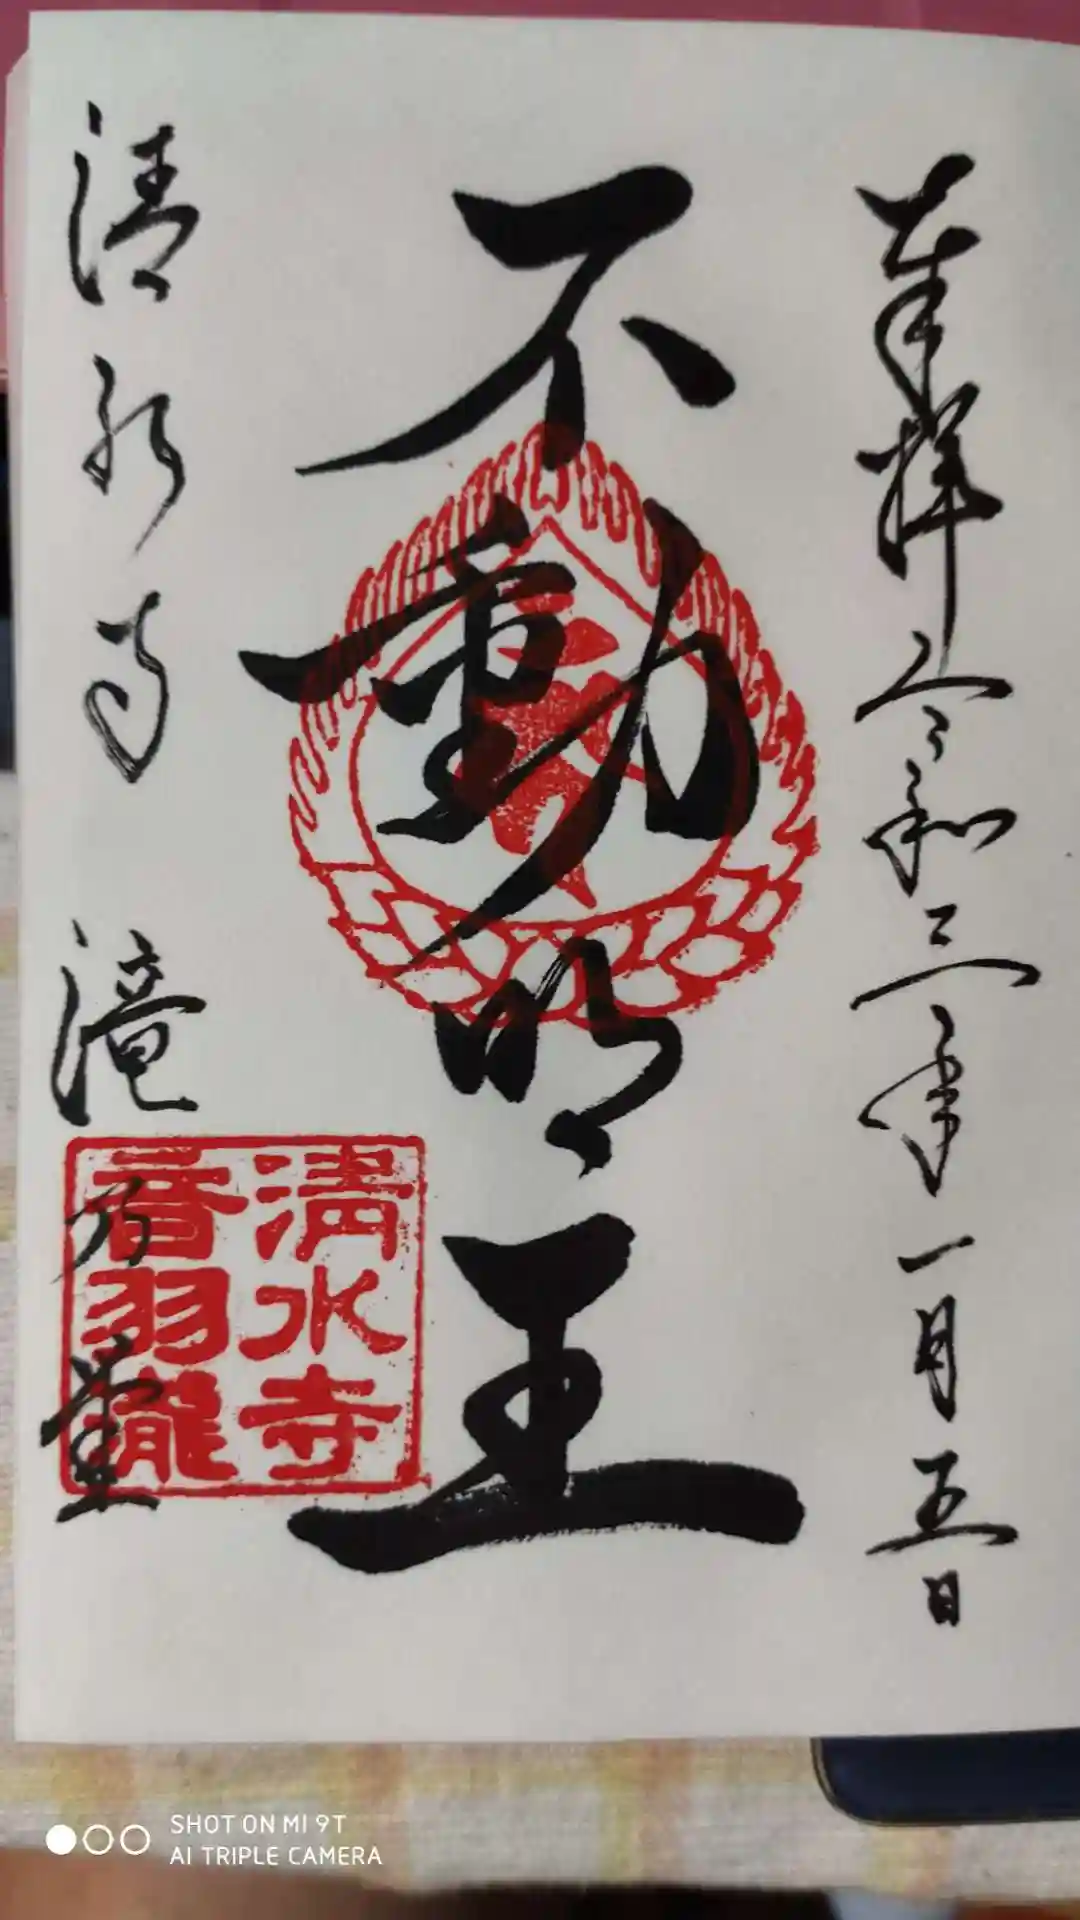 奉拝 令和三年一月五日
不動明王
清水寺 滝乃堂
清水寺
音羽瀧
SHOT ON MI 9T
AI TRIPLE CAMERA